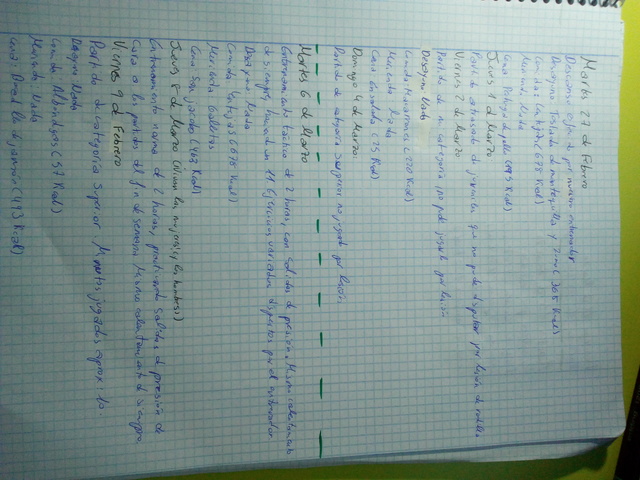 Martes 27 de Febrero
Descanso oficial por nuestro entrenador
Desayuno Tostada de mantequilla y zumo (365 Kcal)
Comida: Lentejas (678 Kcal)
Merienda Nada
Cena Pechuga de pollo (195 Kcal)
Jueves 1 de Marzo
Partido de juveniles que no pude disputar por lesión de rodilla
Viernes 2 de Marzo
Partido de mi categoría no pude jugarlo por lesión
Desayuno Nada
Comida Macarrones (220 Kcal)
Merienda Nada
Cena Ensalada (75 Kcal)
Domingo 4 de Marzo
Partido de categoría superior no jugado por lesión
Martes 6 de Marzo
Entrenamiento táctico de 2 horas, con salidas de presión. Mismo calentamiento
de siempre, basado en 11 Ejercicios variados dispuestos por el entrenador
Desayuno Nada
Comida Lentejas (678 Kcal)
Merienda Galletas
Cena San jacobo (463 Kcal)
Jueves 8 de Marzo (Vivan las mujeres (y los hombres))
Entrenamiento normal de 2 horas, practicando salidas de presión de
cara a los partidos del fin de semana Mismo calentamiento de siempre
Viernes 9 de Febrero
Partido de categoría superior Minutos jugados aprox: 10
Desayuno Nada
Comida Albóndigas (57 Kcal)
Merienda Nada
Cena: de jamón (413 Kcal)